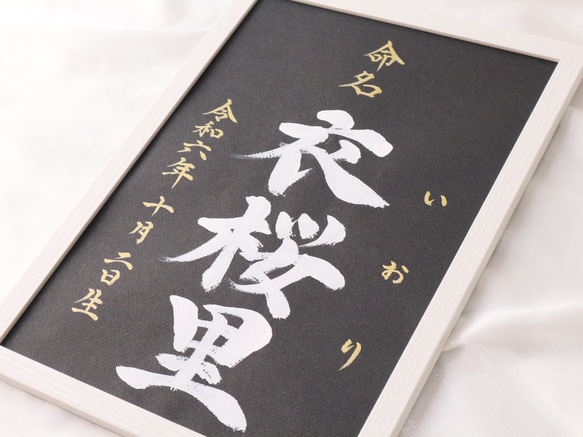 命名
いおり
衣桜里
令和六年 十月 二日生